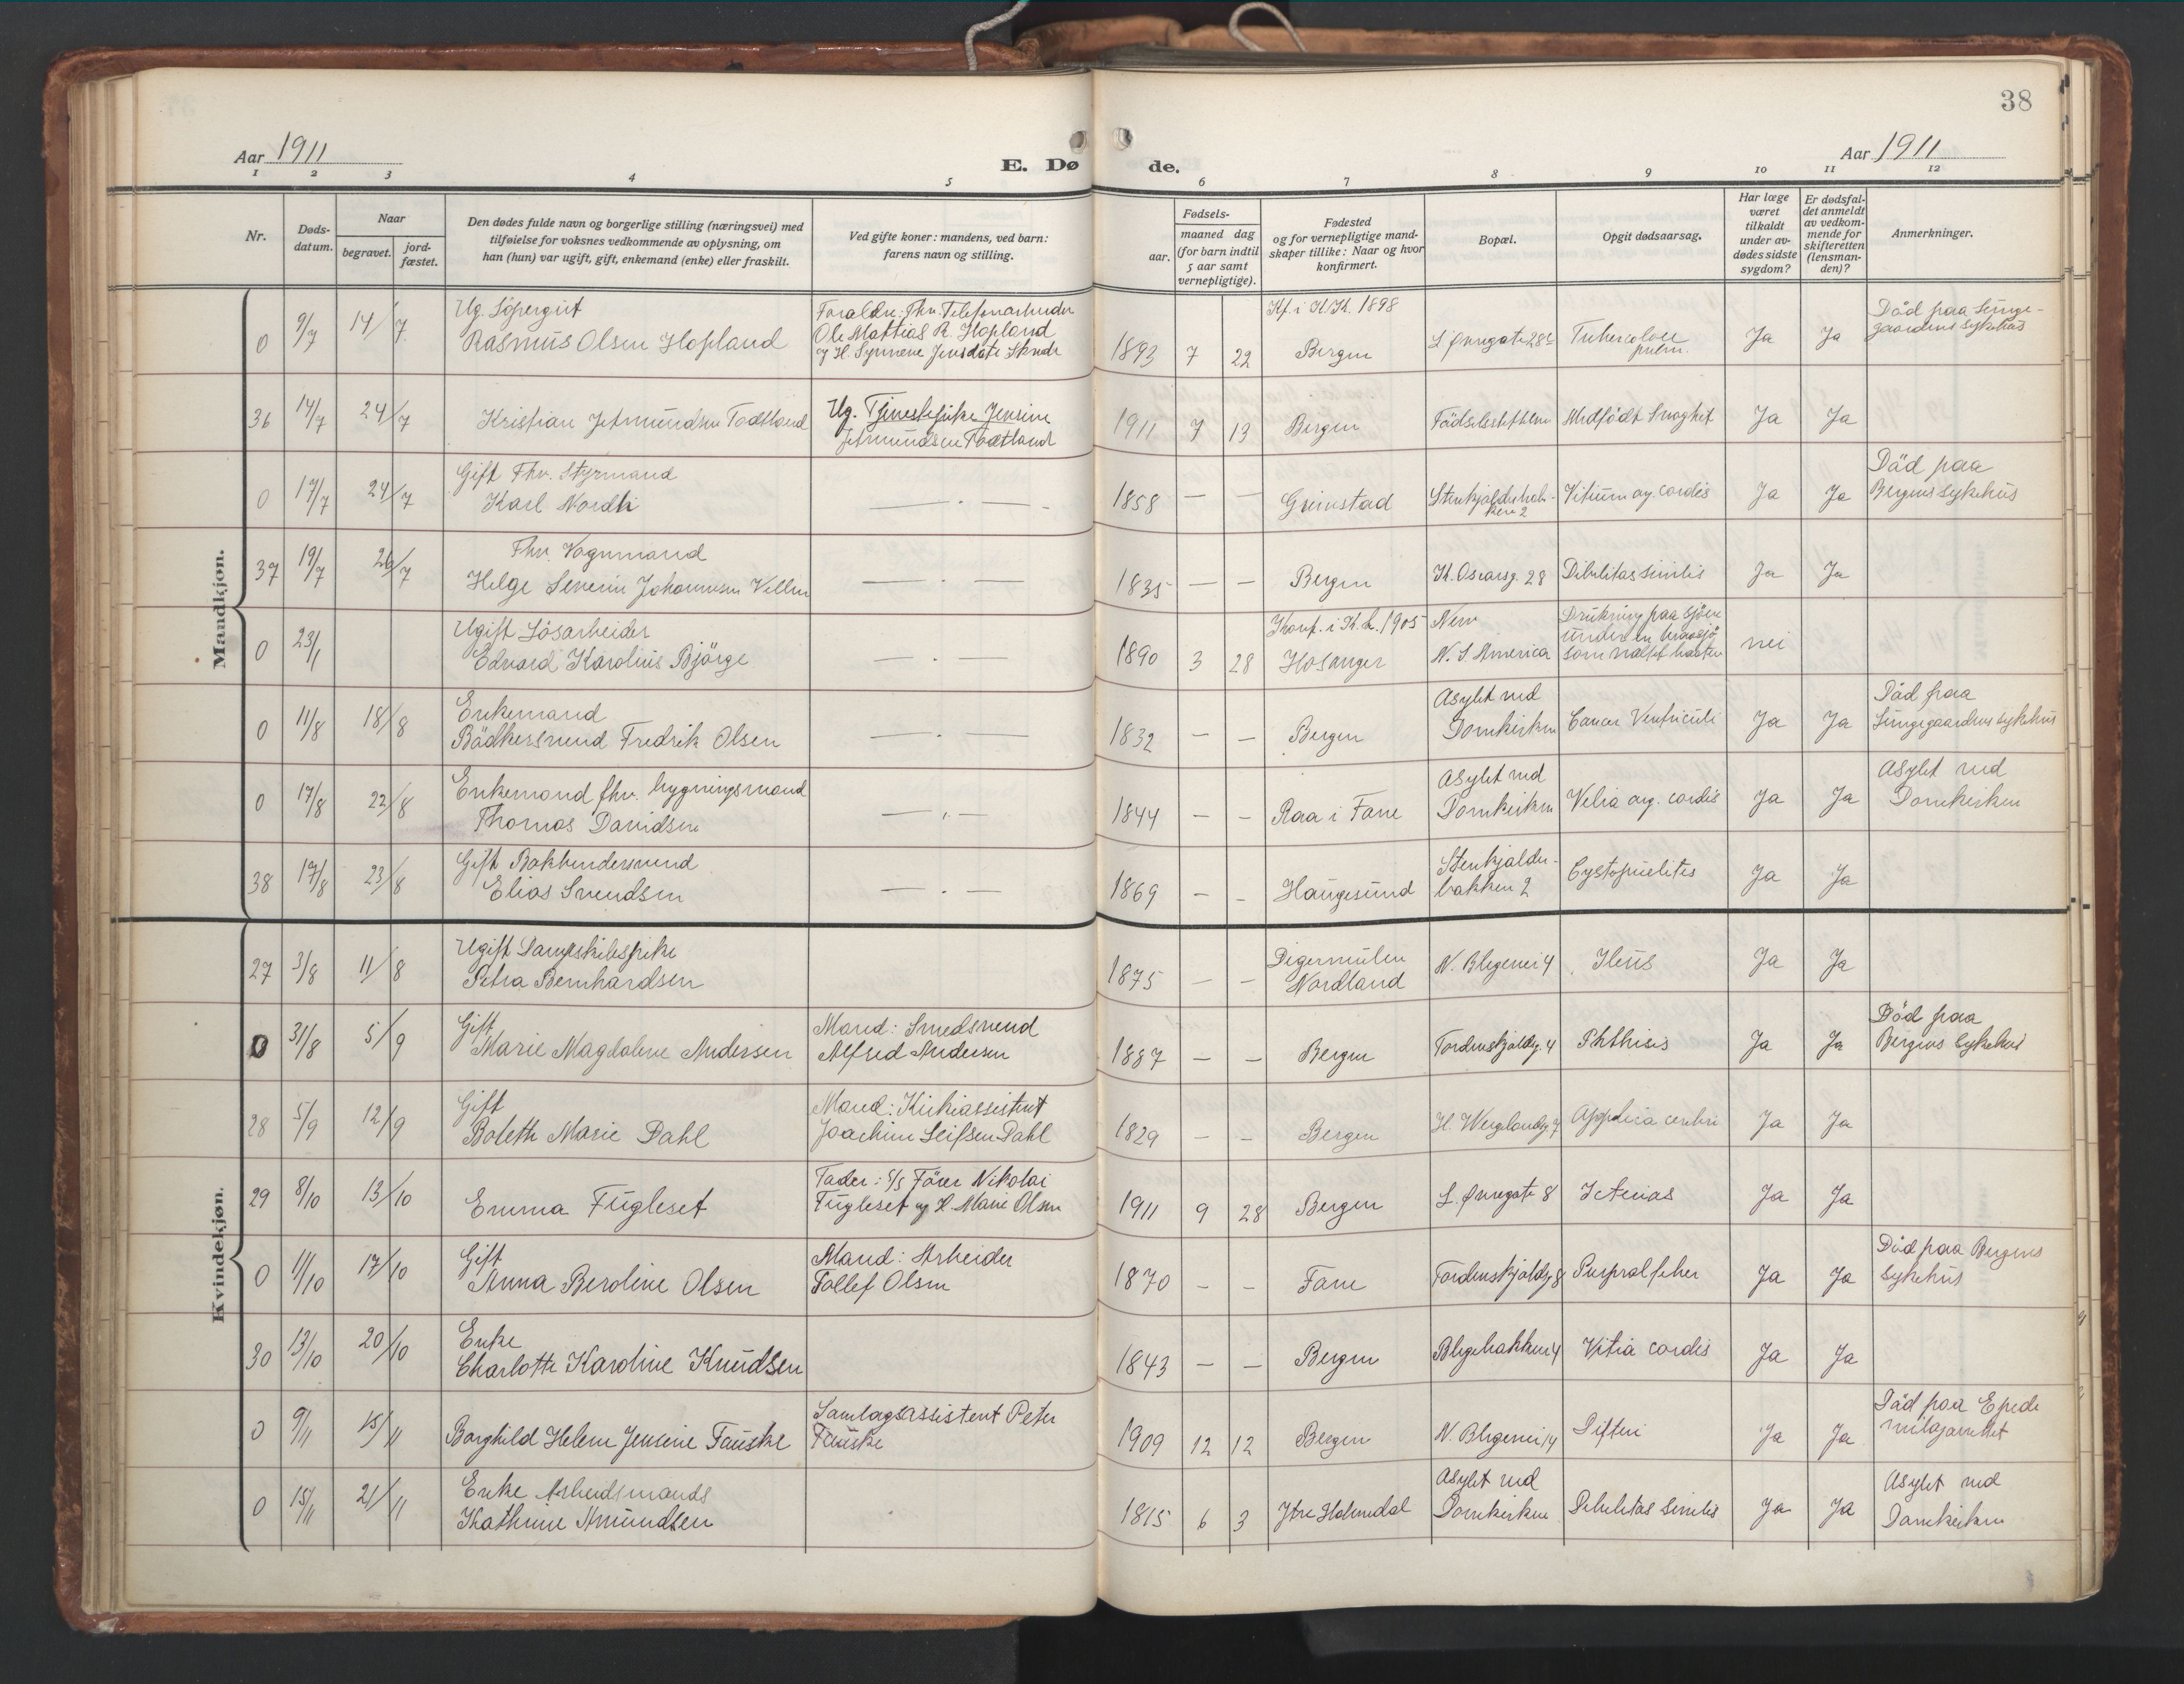 38
Aar 1911
E. Dø de.
Aar 1911
1 2 3 4 5 6 7 8 9 10 11 12
Nr.
Døds-
datum.
Naar
begravet.
jord-
fæstet.
Den dødes fulde navn og borgerlige stilling (næringsvei) med
tilføielse for voksnes vedkommende av oplysning, om
han (hun) var ugift, gift, enkemand (enke) eller fraskilt.
Ved gifte koner: mandens, ved barn:
farens navn og stilling.
Fødsels-
aar.
maaned dag
(for barn indtil
5 aar samt
vernepligtige).
Fødested
og for vernepligtige mand-
skaper tillike: Naar og hvor
konfirmert.
Bopæl.
Opgit dødsaarsag.
Har læge
været
tilkaldt
under av-
dødes sidste
sygdom?
Er dødsfal-
det anmeldt
av vedkom-
mende for
skifteretten
(lensman-
den)?
Anmerkninger.
Mandkjøn.
0 9/7 14/7
Ug. Løpergut
Rasmus Olsen Hopland
Forældre: Fhv. Telefonarbeider
Ole Mattias R. Hopland
og H. Synneve Jensdatr
1893 7 22
Kf. i K.K. 1898
Bergen
L. Øvregate 28c
Tuberculose
pulm.
Ja Ja
Död paa Lunge-
gaardens sykehus
36 14/7 24/7
Kristian Jetmundsen Todtland
Ug. Tjenestepike Jensine
Jetmundsen Todtland
1911 7 13 Bergen
Födselsstiftelsen
Medfödt Svaghet
Ja Ja
0 17/7 24/7
Gift Fhv. Styrmand
Karl Nordli
— . —
1858 — — Grimstad
Stenkjelderbak-
ken 2
Vitium org. cordis
Ja Ja
Död paa
Bergens sykehus
37 19/7 26/7
Fhv. Vognmand
Helge Severin Johannesen Vellen
— . —
1835 — — Bergen
K. Oscarsg. 28
Debilitas senilis
Ja Ja
0 23/1
Ugift Lösarbeider
Edvard Karolius Björge
— . —
1890 3 28
Konf. i K.K. 1905
Hosanger
New
N. S. America
Drukning paa sjöen
under en
som
nei
0 11/8 18/8
Enkemand
Bödkersvend Fredrik Olsen
— . —
1832 — — Bergen
Asylet ved
Domkirken
Cancer Ventriculi
Ja Ja
Död paa
Lungegaardens sykehus
0 17/8 22/8
Enkemand fhv. bygningsmand
Thomas Davidsen
— . —
1844 — — Raa i Fane
Asylet ved
Domkirken
org. cordis
Ja Ja
Asylet ved
Domkirken
38 17/8 23/8
Gift Bokbindersvend
Elias Svendsen
— . —
1869 — — Haugesund
Stenkjelder-
bakken 2
Cystopielitis
Ja Ja
Kvindekjøn.
27 3/8 11/8
Ugift Dampskibspike
Petra Bernhardsen
1875 — —
Digermulen
Nordland
N. Blegevei 4
Ileus
Ja Ja
0 31/8 5/9
Gift
Marie Magdalene Andersen
Mand: Smedsvend
Alfred Andersen
1887 — — Bergen
Tordenskjoldsg. 4
Phthisis
Ja Ja
Död paa
Bergens Sykehus
28 5/9 12/9
Gift
Boleth Marie Dahl
Mand: Kirkeassistent
Joachim Leifsen Dahl
1829 — — Bergen
H. Wergelandsg. 7
cerebri
Ja Ja
29 8/10 13/10
Emma Fugleset
Fader: S/S Förer Nikolai
Fugleset og H. Marie Olsen
1911 9 28 Bergen
L. Øvregate 8
Icterias
Ja Ja
0 11/10 17/10
Gift
Anna Beroline Olsen
Mand: Arbeider
Tollef Olsen
1870 — — Fane
Tordenskjoldsg. 8
Puerpral feber
Ja Ja
Död paa Bergens
Sykehus
30 13/10 20/10
Enke
Charlotte Karoline Knudsen
1843 — — Bergen
Blegebakken 4
Vitia cordis
Ja Ja
0 9/11 15/11
Borghild Helene Jensine Fauske
Samlagsassistent Peter
Fauske
1909 12 12 Bergen
N. Blegevei 14
Difteri
Ja Ja
Död paa Epede
milajarettet
0 15/11 21/11
Enke Arbeidsmands
Kathrine Amundsen
1815 6 3 Ytre Holmedal
Asylet ved
Domkirken
Debilitas senilis
Ja Ja
Asylet ved
Domkirken